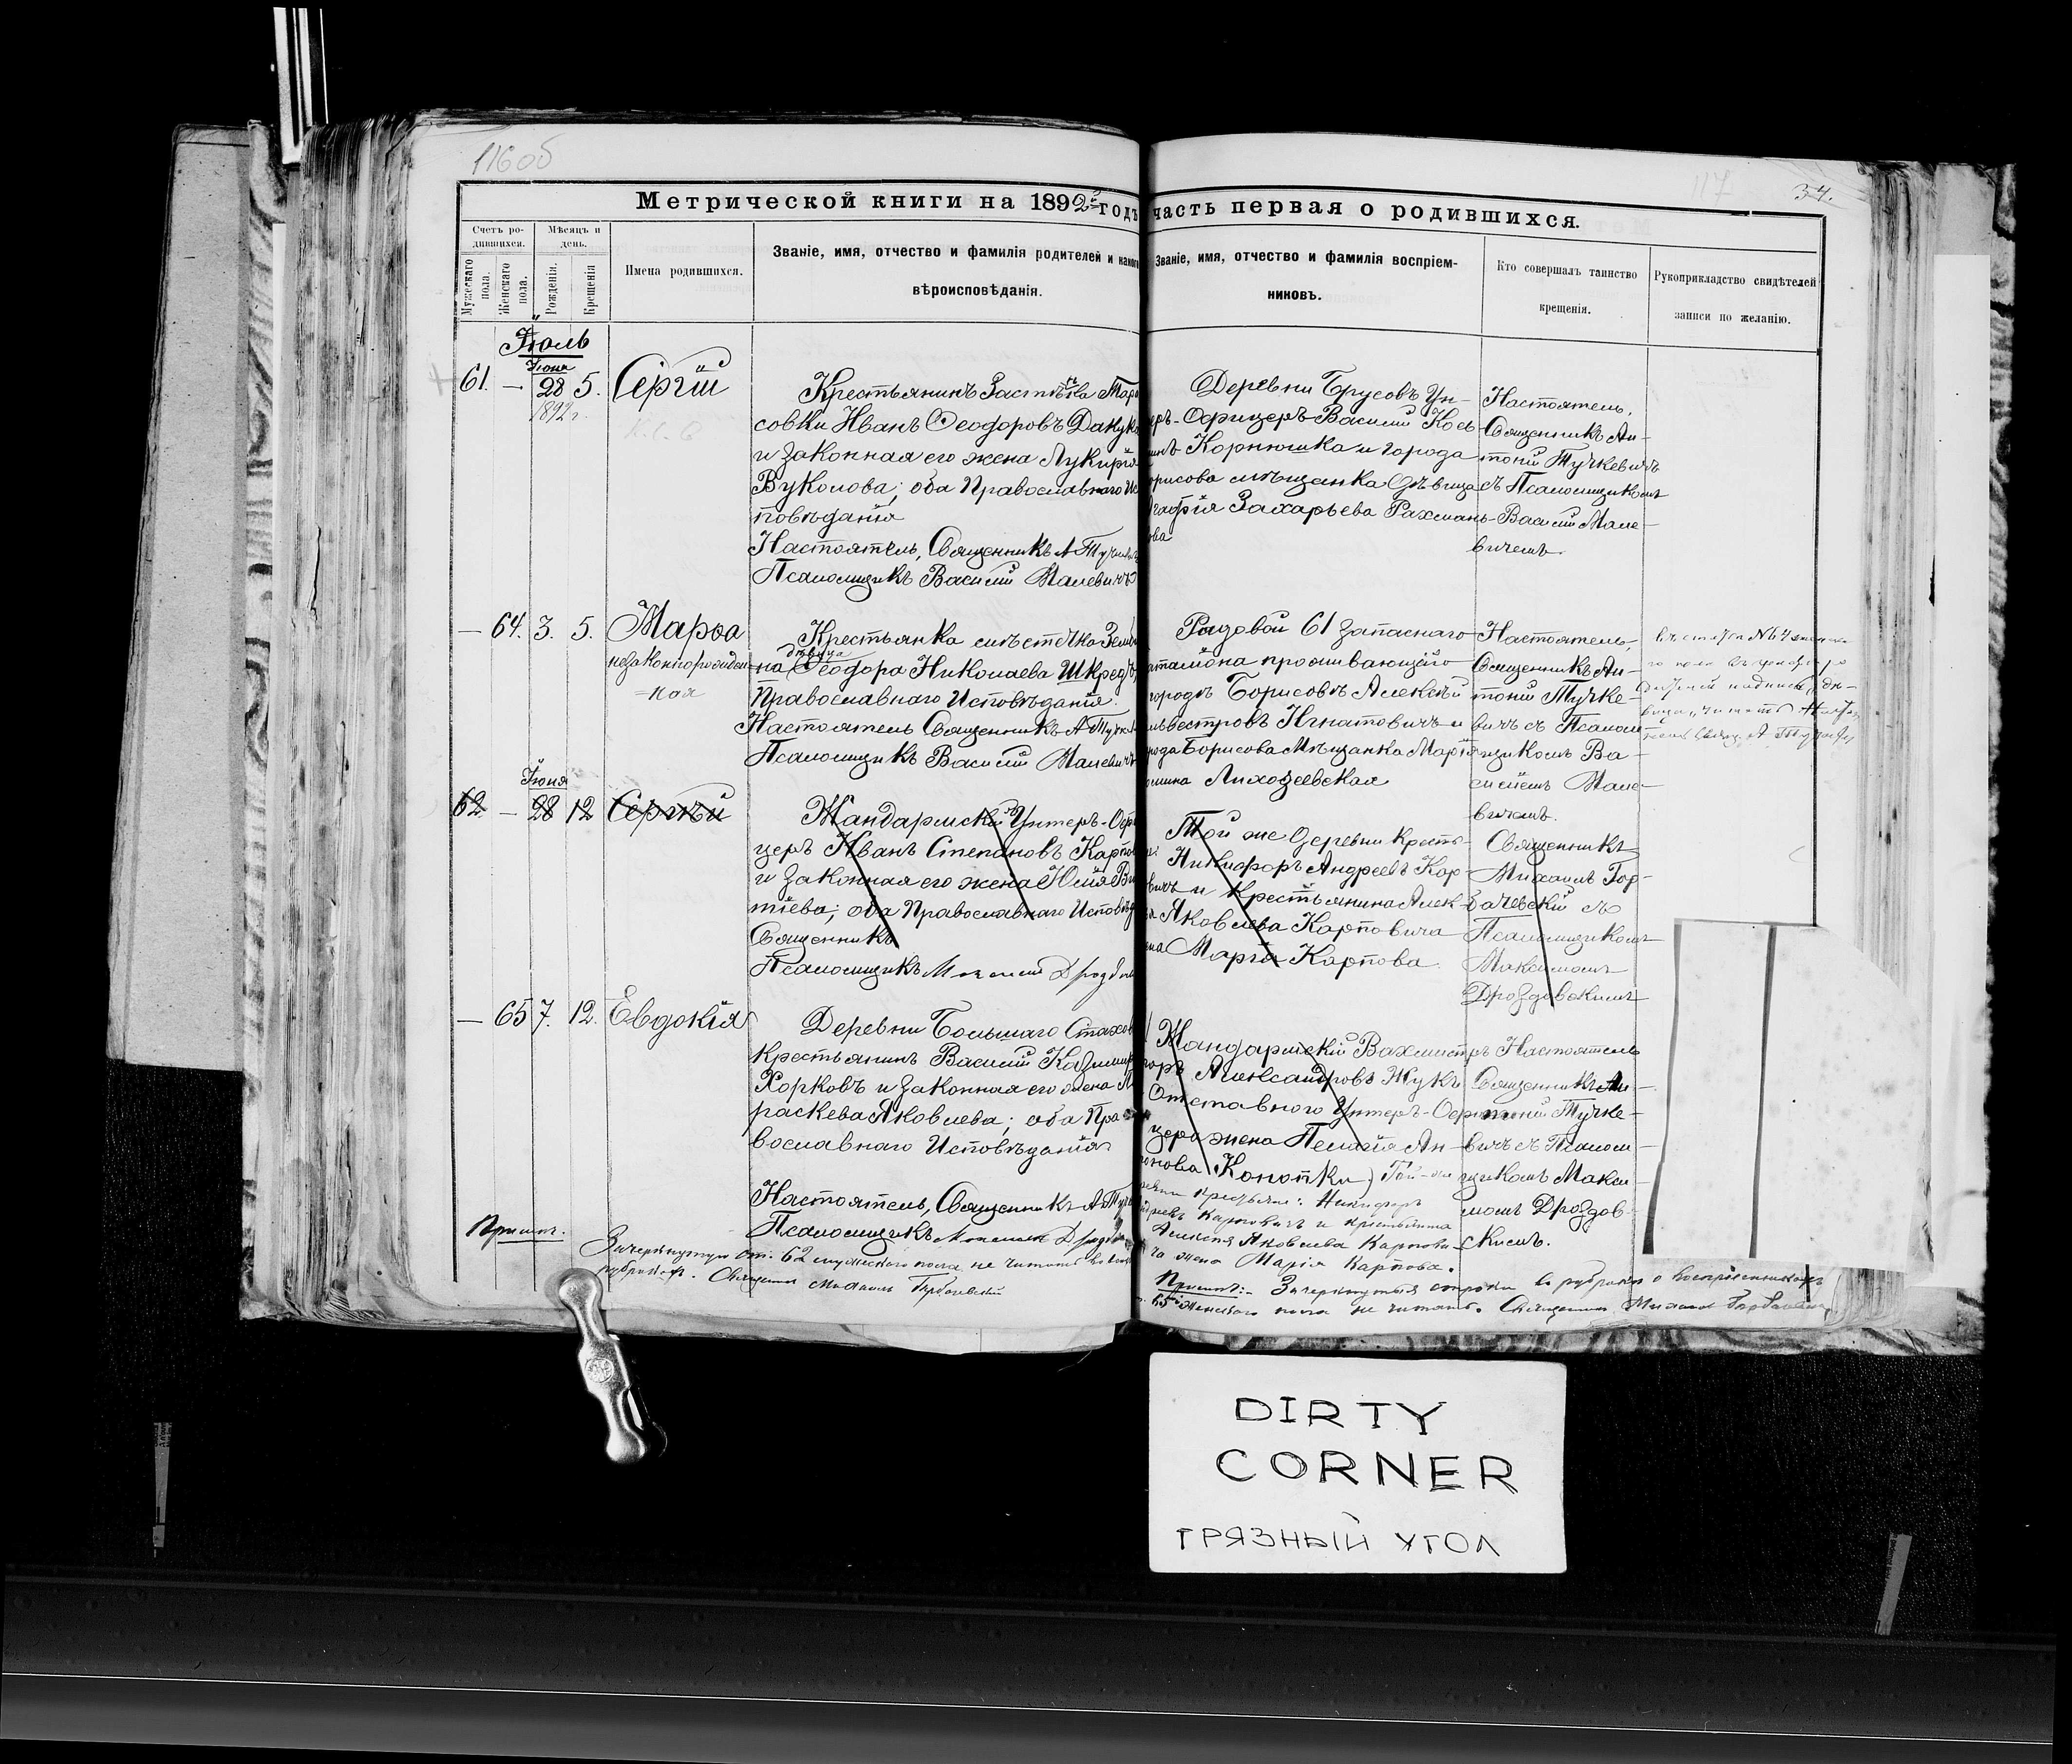 116об
117
34.
Метрической книги на 1892й годъ часть первая о родившихся.
Счетъ ро-
дившихся.
Мѣсяцъ и
день.
Мужескаго
пола.
Женскаго
пола.
Рожденія.
Крещенія
Имена родившихся.
Званіе, имя, отчество и фамилія родителей и какого
вѣроисповѣданія.
Званіе, имя, отчество и фамилія воспріем-
никовъ.
Кто совершалъ таинство
крещенія.
Рукоприкладство свидѣтелей
записи по желанію.
Іюль
61. — Іюня 28 5. Сергій
1892 г.
Крестьянинъ Застѣнка
совки Иванъ Ѳеодоровъ
и законная его жена Лукирія
Вуколова; оба Православнаго Ис
повѣданія
Настоятель, Священникъ А Тучкевичъ
Псаломщикъ Василій Малевичъ
Деревни Брусовъ Ун-
еръ-Офицеръ Василій
Корнюшка и города
орисова мѣщанка дѣвица
Захарьева Рахман-
ова
Настоятель,
Священникъ Ан-
тоній Тучкевичъ
съ Псаломщикомъ
Василій Мале-
вичемъ.
— 64. 3. 5. Марѳа
незаконнорожден-
ная
Крестьянка мѣстечка
дѣвица
на Ѳеодора Николаева
Православнаго Исповѣданія.
Настоятель Священникъ А
Псаломщикъ Василій Малевичъ
Рядовой 61 запаснаго
аталіона проживающій
городѣ Борисовѣ Алексѣй
львестровъ Игнатовичъ и
рода Борисова Мѣщанка Марія
Лиходіевская
Настоятель,
Священникъ Ан-
тоній Тучке-
вичъ съ Псалом
щикомъ Ва-
силіемъ Мале-
вичемъ.
Іюня
62 — 28 12 Сергѣй
Жандармскій Унтеръ-Офи
церъ Иванъ Степановъ
и законная его жена Юлія
тіева; оба Православнаго Исповѣд
Священникъ
Псаломщикъ
Той же деревни кресть-
Никифоръ Андреевъ Кар-
вичъ и крестьянина Алек-
Яковлева Карповича
ена Марія Карпова
Священникъ
Михаилъ Гор-
бачевскій съ
Псаломщикомъ
Максимомъ
Дроздовскимъ
— 65 7. 12. Евдокія
Деревни Большаго Стахов
крестьянинъ Василій
Хорковъ и законная его жена
раскева Яковлева; оба Пра-
вославнаго Исповѣданія
Настоятель, Священникъ А
Псаломщикъ
Жандармскій Вахмистръ
Александровъ Жукъ
Отставного Унтеръ-Офи
цера жена Пелагія Ан-
онова Конопки) Той-же
крестьяне: Никифоръ
реевъ Карповичъ и крестьянина
Алексѣя Яковлева Карпови-
ча жена Марія Карпова.
Настоятель
Священникъ Ан-
тоній Тучке-
вичъ съ Псалом-
щикомъ Макси-
момъ Дроздов-
скимъ.
Примѣч.
Зачеркнутую ст. 62 мужескаго пола, не читать
Священникъ Михаилъ Горбачевскій
Примѣч:- Зачеркнутыя строки въ рубрикѣ о воспріемникахъ
65 женскаго пола не читать. Священникъ Михаилъ Горбачевскій
DIRTY
CORNER
ГРЯЗНЫЙ УГОЛ